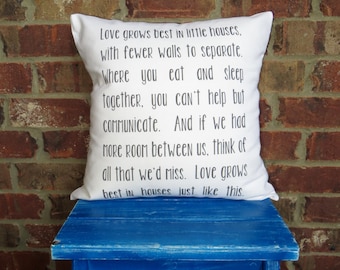 LOVE GROWS BEST IN LITTLE HOUSES,
WITH FEWER WALLS TO SEPARATE.
WHERE YOU EAT AND SLEEP
TOGETHER, YOU CAN'T HELP BUT
COMMUNICATE. AND IF WE HAD
MORE ROOM BETWEEN US, THINK OF
ALL THAT WE'D MISS. LOVE GROWS
BEST IN HOUSES JUST LIKE THIS.